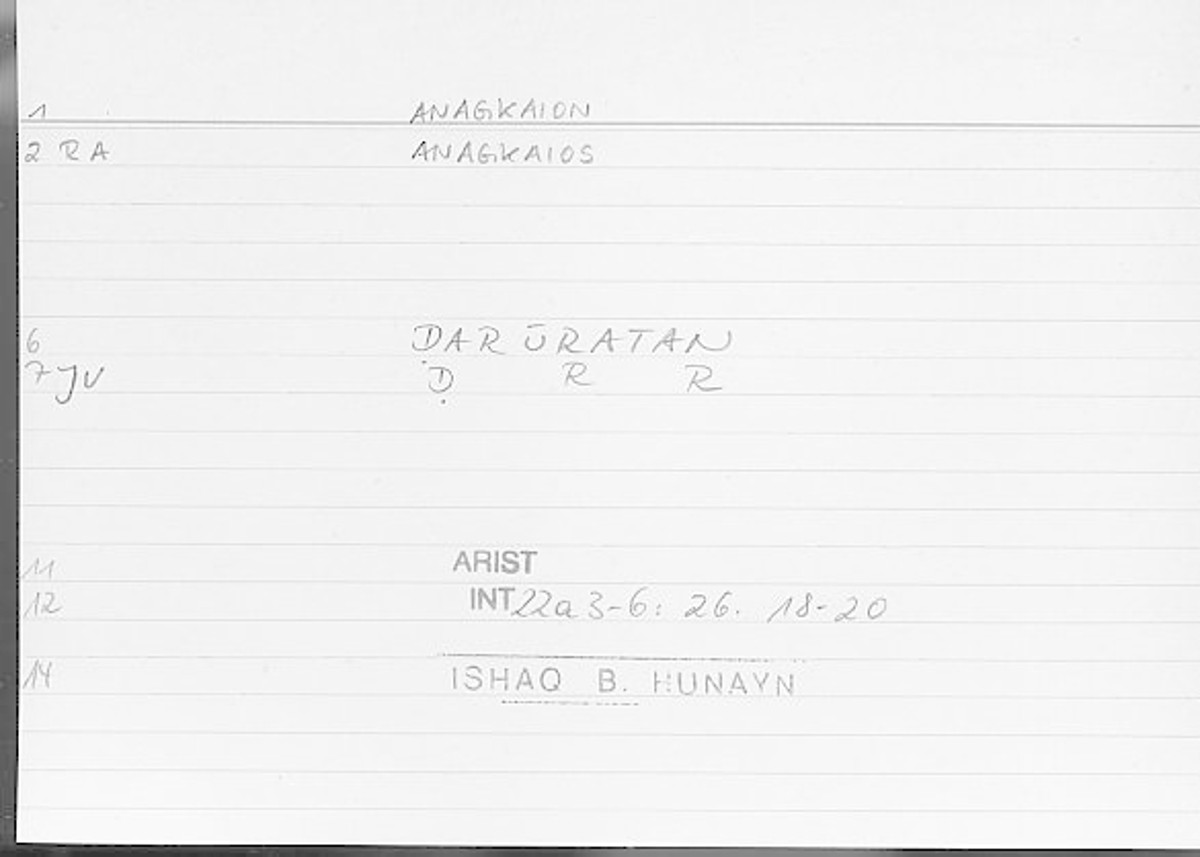 1 ANAGKAION
2 RA ANAGKAIOS
6 ḌARŪRATAN
7 JV Ḍ R R
11 ARIST
12 INT 22a3-6: 26. 18-20
14 ISHAQ B. HUNAYN